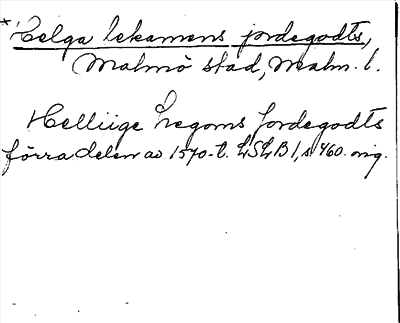 *Helga lekamens jordegodts,
Malmö stad, Malm. l.
Helliige Legoms Jordegodts
förra delen av 1570-t. LSLB 1, s 460. orig.